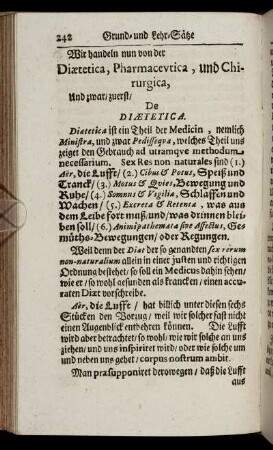 242 Grund- und Lehr-Sätze
Wir handeln nun von der
Diætetica, Pharmacevtica, und Chi-
rurgica,
Und zwar/zuerst/
De
DIÆTETICA.
Diætetica ist ein Theil der Medicin, nemlich
Ministra, und zwar Pedisseqva, welches Theil uns
zeiget den Gebrauch ad utramqve methodum
necessarium. Sex Res non naturales sind (1.)
Aër, die Lufft/ (2.) Cibus & Potus, Speiß und
Tranck/ (3.) Motus & Qvies, Bewegung und
Ruhe/ (4.) Somnus & Vigiliæ, Schlaffen und
Wachen/ (5.) Excreta & Retenta, was aus
dem Leibe fort muß/und/was drinnen blei-
ben soll/ (6.) Animi pathemata sive Affectus, Ge-
müths-Bewegungen/oder Regungen.
Weil denn der Diæt der so genandten sex rerum
non-naturalium allein in einer justen und richtigen
Ordnung bestehet/so soll ein Medicus dahin sehen/
wie er/ so wohl gesunden als krancken/ einen accu-
raten Diæt vorschreibe.
Aër, die Lufft/ hat billich unter diesen sechs
Stücken den Vorzug/ weil wir solcher fast nicht
einen Augenblick entbehren können. Die Lufft
wird aber betrachtet/ so wohl/wie wir solche an uns
ziehen/ und uns inspiriret wird/ oder wie solche um
und neben uns gehet/ corpus nostrum ambit.
Man præsupponiret derowegen/ daß die Lufft
aus